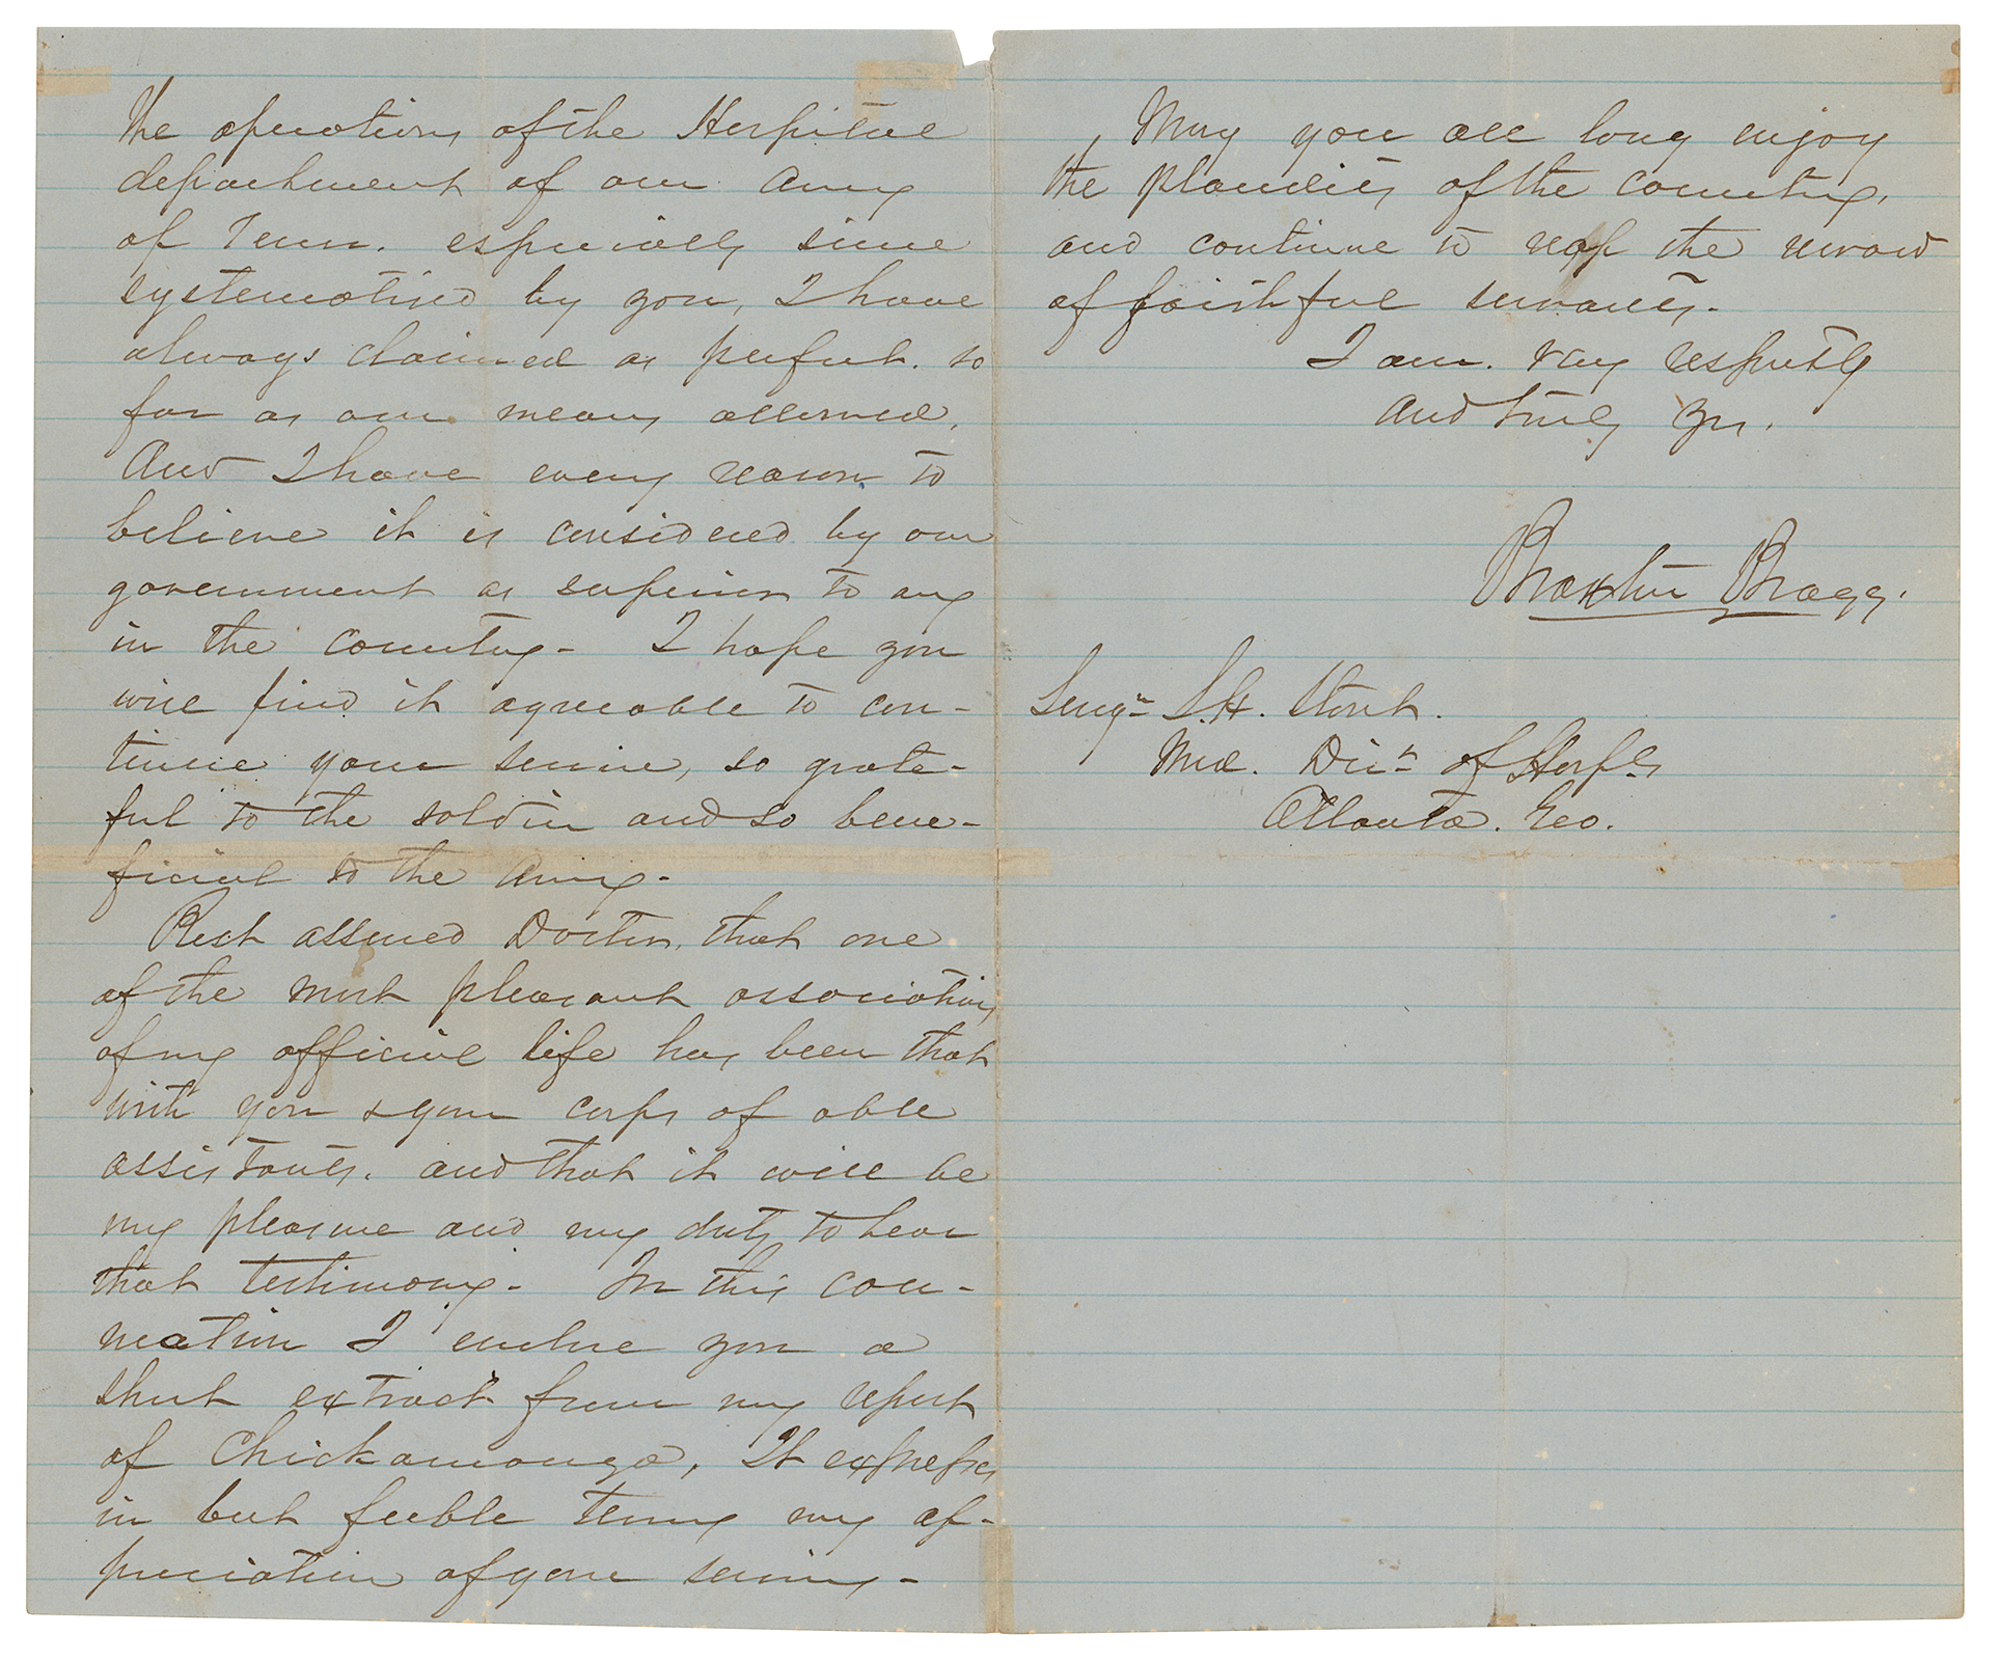 The operations of the Hospital
department of our Army
of Tenn. especially since
systematised by you, I have
always claimed as perfect. so
far as our means allowed.
And I have every reason to
believe it is considered by our
government as superior to any
in the country - I hope you
will find it agreeable to con-
tinue your service, so grate-
ful to the soldier and so bene-
ficial to the Army -
Rest assured Doctor, that one
of the most pleasant associations
of my official life has been that
with you & your corps of able
assistants. and that it will be
my pleasure and my duty to bear
that testimony - In this con-
nection I enclose you a
short extract from my report
of Chickamauga, It expresses
in but feeble terms my ap-
preciation of your services -
May you all long enjoy
the plaudits of the country,
and continue to reap the reward
of faithful servants -
I am. very respectly
And truly Yrs.
Braxton Bragg.
Surgn S.H. Stout.
Med. Dirr of Hospls
Atlanta. Geo.